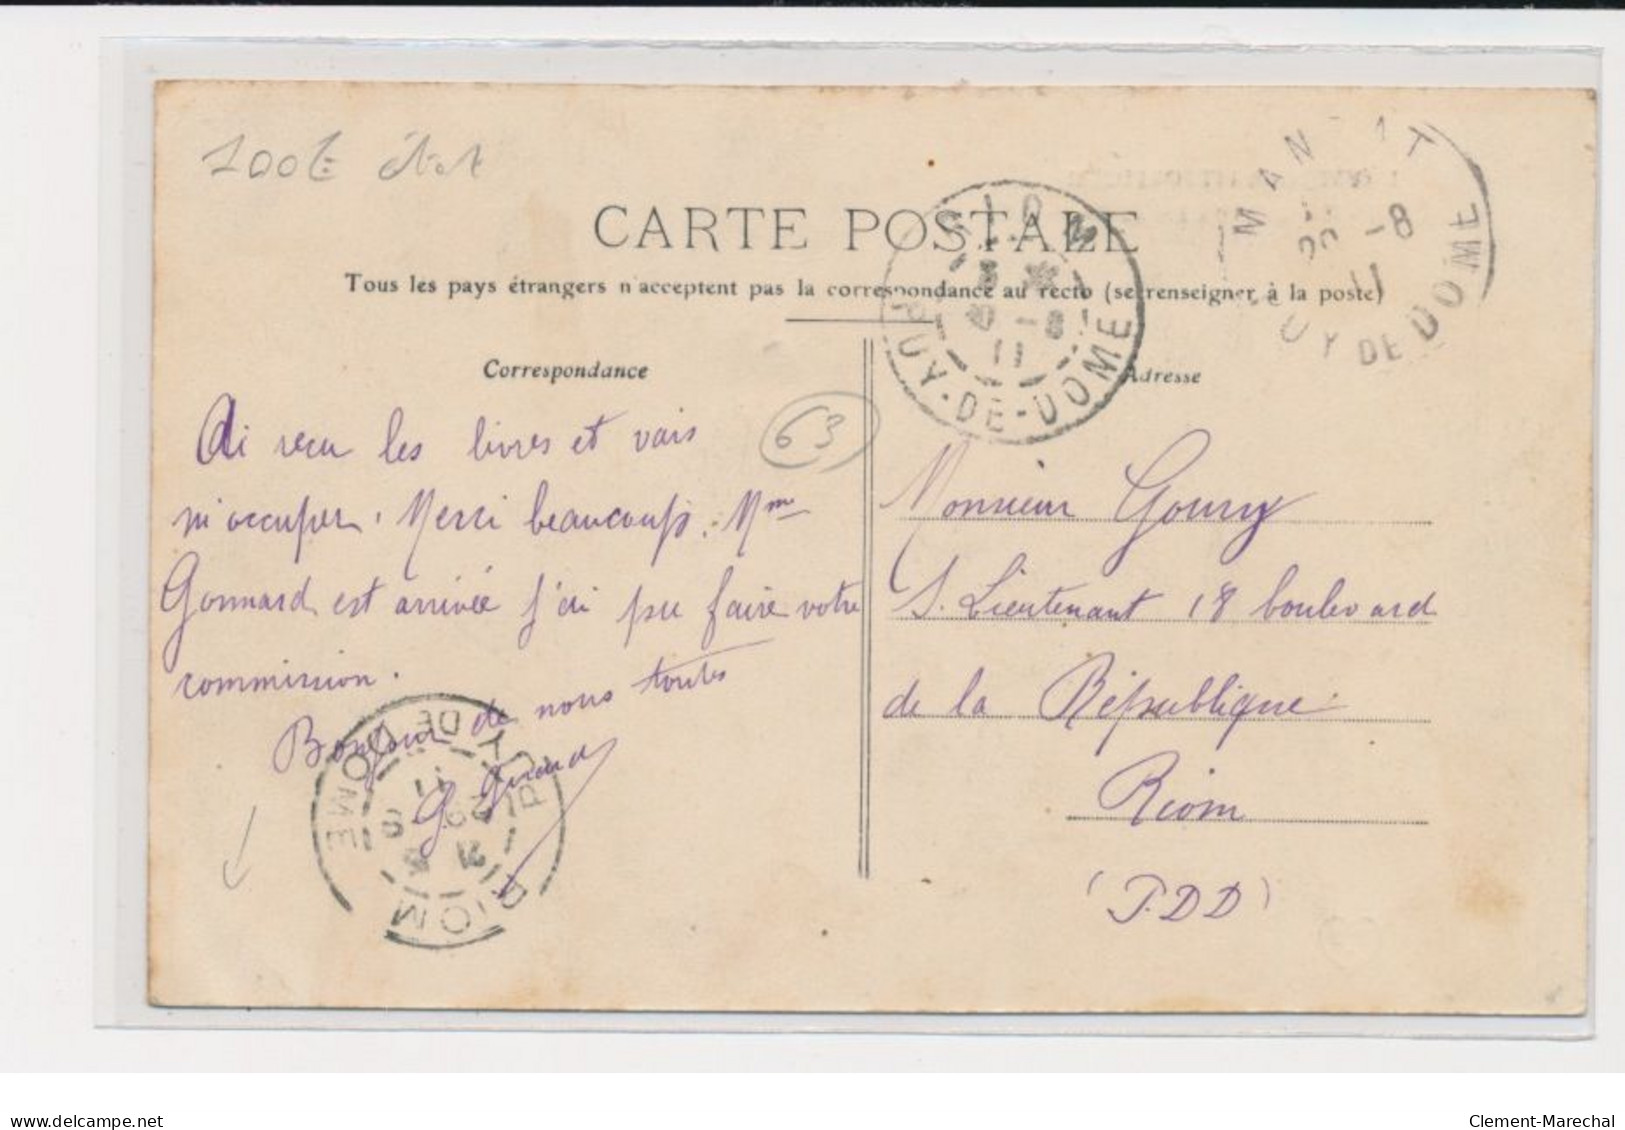 100E état
CARTE POSTALE
Tous les pays étrangers n'acceptent pas la correspondance au recto (se renseigner à la poste)
Correspondance
Adresse
63
Ai reçu les livres et vais
m'occuper. Merci beaucoup. Mme
Gonnard est arrivée j'ai pu faire votre
commission.
Bonjour de nous toutes
G. Girard
Monsieur Goury
S. Lieutenant 18 boulevard
de la République
Riom
(P.DD)
RIOM
-8
11
PUY-DE-DOME
-8
11
PUY DE DOME
RIOM
29
8
11
PUY DE DOME
www.delcampe.net
Clement-Marechal